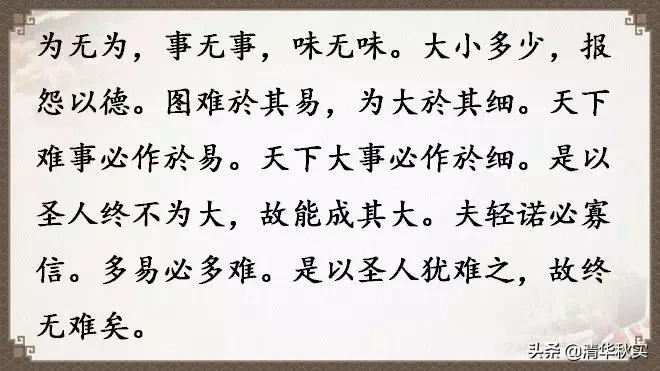 为无为，事无事，味无味。大小多少，报
怨以德。图难於其易，为大於其细。天下
难事必作於易。天下大事必作於细。是以
圣人终不为大，故能成其大。夫轻诺必寡
信。多易必多难。是以圣人犹难之，故终
无难矣。
头条 @清华秋实